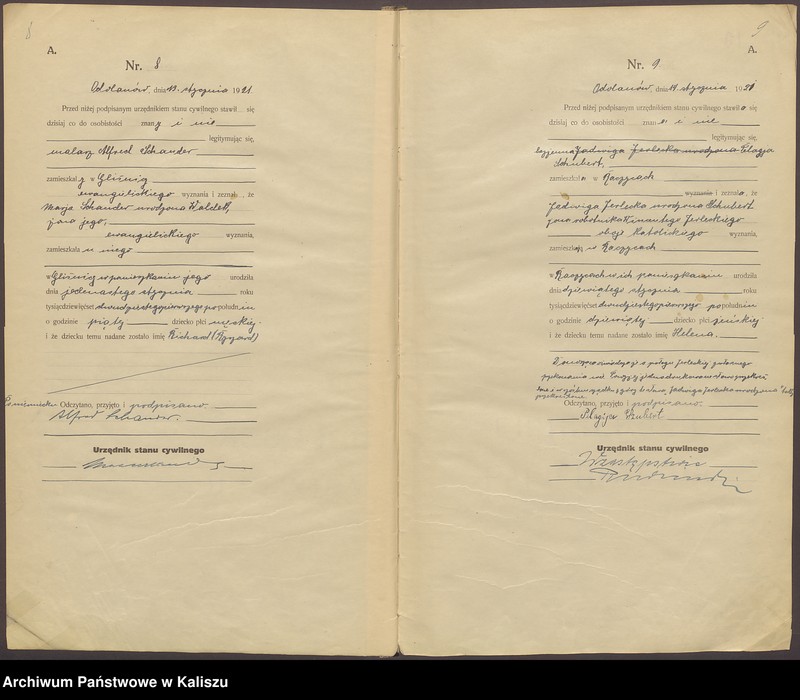 8
A.
Nr. 8
Odolanów, dnia 13. stycznia 1921.
Przed niżej podpisanym urzędnikiem stanu cywilnego stawił się
dzisiaj co do osobistości znany i nie
legitymując się,
malarz Alfred Schander
zamieszkały w
ewangielickiego wyznania i zeznał, że
Marja Schander urodzona
żona jego,
ewangielickiego wyznania,
zamieszkała u niego
w pomieszkaniu jego urodziła
dnia jedenastego stycznia roku
tysiącdziewięćset dwudziestegopierwszego po południu
o godzinie piątej dziecko płci męskiej
i że dziecku temu nadane zostało imię Richard (Ryszard)
Odczytano, przyjęto i podpisano.
Alfred Schander.
Urzędnik stanu cywilnego
9
A.
Nr. 9
Odolanów, dnia 14 stycznia 1921
Przed niżej podpisanym urzędnikiem stanu cywilnego stawiła się
dzisiaj co do osobistości znan i nie
legitymując się,
Jadwiga Jerlecka urodzona
Schubert,
zamieszkała w Raczycach
wyznania i zeznała, że
Jadwiga Jerlecka urodzona Schubert
żona robotnika Jerleckiego
oboje katolickiego wyznania,
zamieszkały w Raczycach
w Raczycach w ich pomieszkaniu urodziła
dnia dziewiątego stycznia roku
tysiącdziewięćset dwudziestegopierwszego po południu
o godzinie dziewiątej dziecko płci żeńskiej
i że dziecku temu nadane zostało imię Helena.
Jadwiga Jerlecka urodzona
Odczytano, przyjęto i podpisano.
Urzędnik stanu cywilnego
W zastępstwie
Archiwum Państwowe w Kaliszu